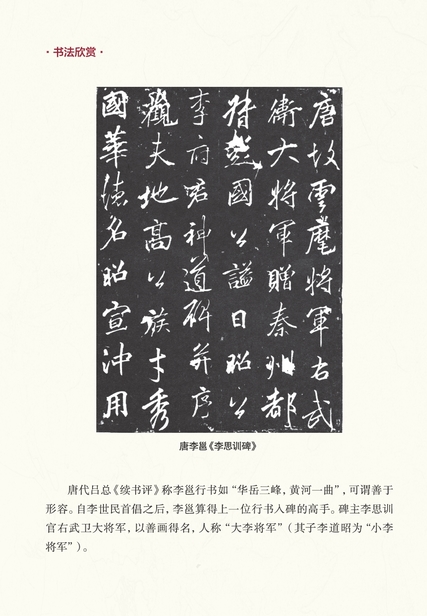 ·书法欣赏·
唐故雲麾將軍右武
衛大將軍贈秦州都
督彭國公謚曰昭公
李府君神道碑并序
觀夫地高公族才秀
國華德名昭宣沖用
唐李邕《李思训碑》
唐代吕总《续书评》称李邕行书如“华岳三峰，黄河一曲”，可谓善于
形容。自李世民首倡之后，李邕算得上一位行书入碑的高手。碑主李思训
官右武卫大将军，以善画得名，人称“大李将军”（其子李道昭为“小李
将军”）。